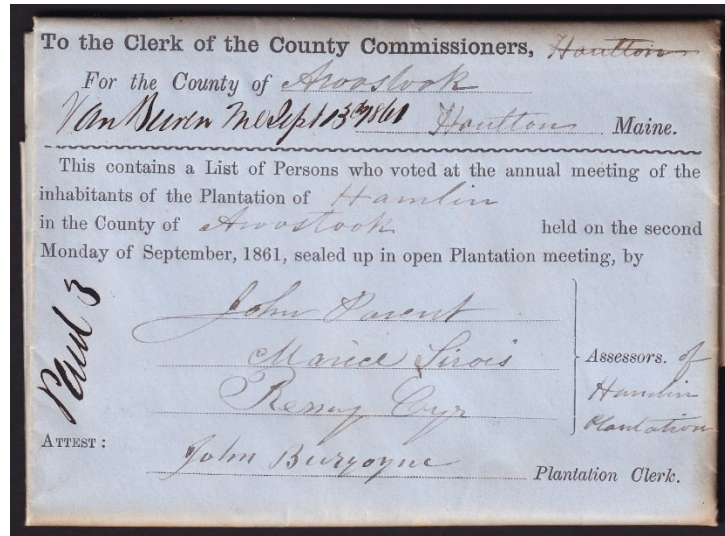 To the Clerk of the County Commissioners, Houlton
For the County of Aroostook
Van Buren Me Sept 13th 1861 Houlton Maine.
This contains a List of Persons who voted at the annual meeting of the
inhabitants of the Plantation of Hamlin
in the County of Aroostook held on the second
Monday of September, 1861, sealed up in open Plantation meeting, by
Paid 3
John Parent
Marice Sirois
Remy Cyr
Assessors. of
Hamlin
Plantation
ATTEST:
John Burgoyne Plantation Clerk.